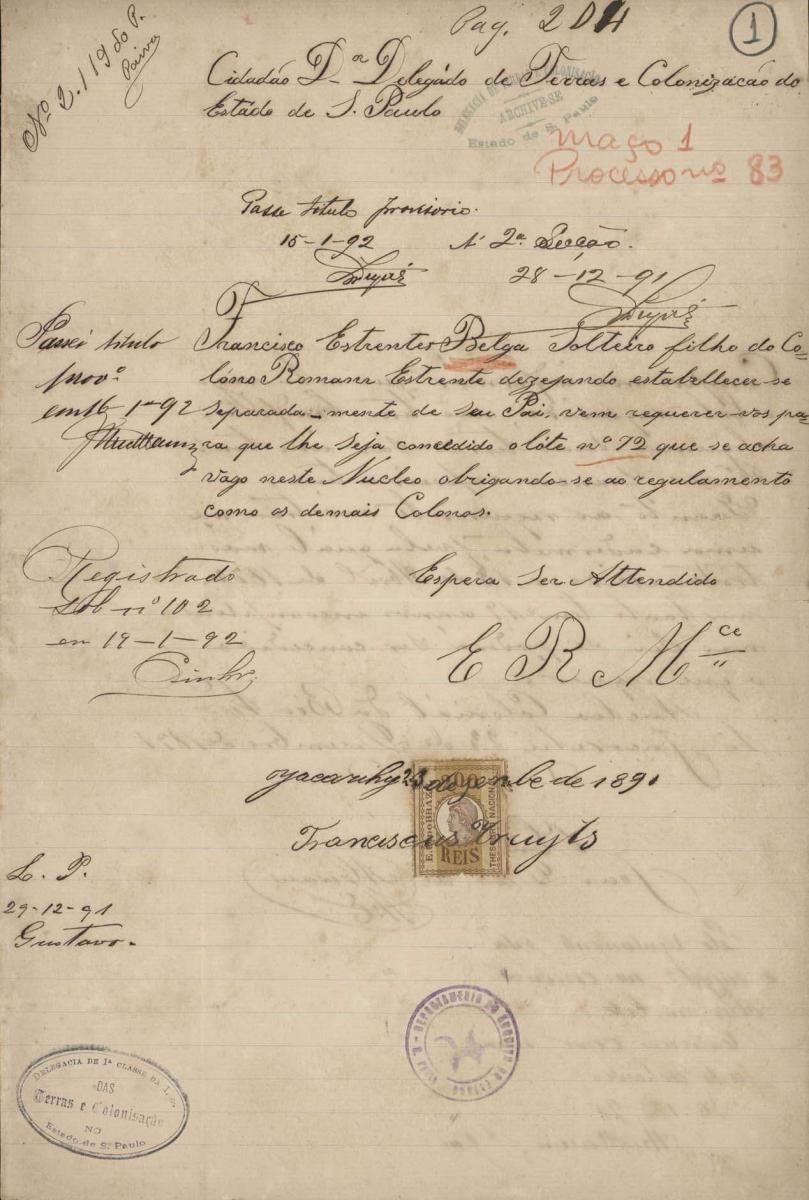 Pag. 204
1
Nº 2.119 do P.
Paiva
Cidadão Dor Delegádo de Terras e Colonização do
Estádo de S. Paulo
ARCHIVE-SE
Estado de S. Paulo
Maço 1
Processo nº 83
Passe titulo provisorio.
15-1-92
A' 2ª Secção.
28-12-91
Passei titulo
provº
em 16-1-92
Francisco Estrenter Belga Solteiro filho do Co=
lóno Romann Estrente dezejando estabellecer-se
separada-mente de seu Pai, vem requerer-vos pa=
ra que lhe seja concedido o lóte nº 72 que se acha
vago neste Nucleo obrigando-se ao regulamento
como os demais Colonos.
Registrado
sob nº 102
em 19-1-92
Espera ser Attendido
E R Mce
Jacarehy 23 de 1891
Franciscus Truyts
200
E. U. DO BRAZIL
THESOURO NACIONAL
REIS
L. P.
29-12-91
Gustavo.
DEPARTAMENTO DO ARQUIVO DO ESTADO
DELEGACIA DE 1ª CLASSE DA I.
DAS
Terras e Colonisação
NO
Estado de S. Paulo